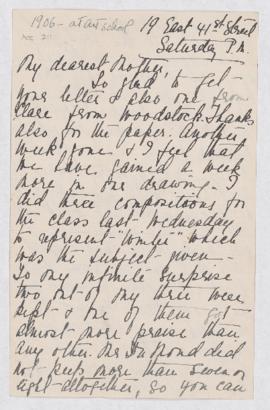 1906 - at art school
19 East 41st Street
Saturday P.M.
My dearest Mother,
So glad to get
your letter & also one from
Clare from Woodstock. Thanks
also for the paper. Another
week gone & I feel that
we have gained a week
more in our drawing. I
did three compositions for
the class last Wednesday
to represent "Winter" which
was the subject given -
To my infinite surprise
two out of my three were
kept & one of them got
almost more praise than
any other. Mr. Du Mond did
not keep more than seven or
eight altogether, so you can